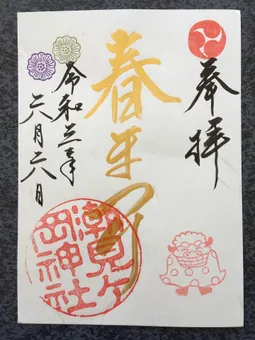 奉拝
春まつり
令和三年
六月六日
潮見ヶ
岡神社